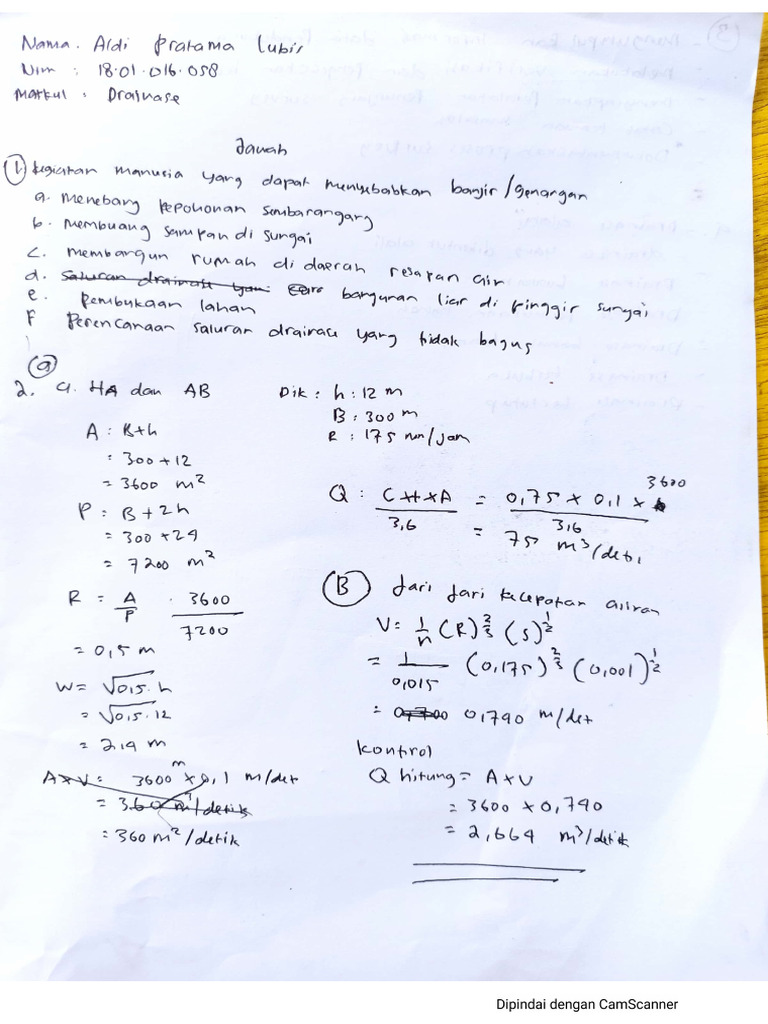 Nama. Aldi Pratama Lubis
Nim : 18.01.016.058
Matkul : Drainase
Jawab
1. kegiatan manusia yang dapat menyebabkan banjir/genangan
a. menebang pepohonan sembarangang
b. membuang sampah di sungai
c. membangun rumah di daerah resapan air
d. bangunan liar di pinggir sungai
e. pembukaan lahan
F perencanaan saluran drainasi yang tidak bagus
(a)
2. a. HA dan AB
Dik : h : 12 m
B : 300 m
R : 175 mm/jam
A : B+h
= 300+12
= 3600 m²
P : B + 2h
= 300 +24
= 7200 m²
R = A/P . 3600/7200
= 0,5 m
W = √0,5. h
= √0,5. 12
= 2,19 m
A×V = 3600 m × 0,1 m/det
= 360 m³/detik
= 360 m²/detik
Q : C × I × A / 3,6 = 0,75 × 0,1 × 3600 / 3,6
= 75 m³/deti
(B) Jari Jari kecepatan aliran
V = 1/n (R)^2/3 (S)^1/2
= 1/0,015 (0,175)^2/3 (0,001)^1/2
= 0,1790 m/det
kontrol
Q hitung = A×V
= 3600 × 0,740
= 2,664 m³/detik
Dipindai dengan CamScanner